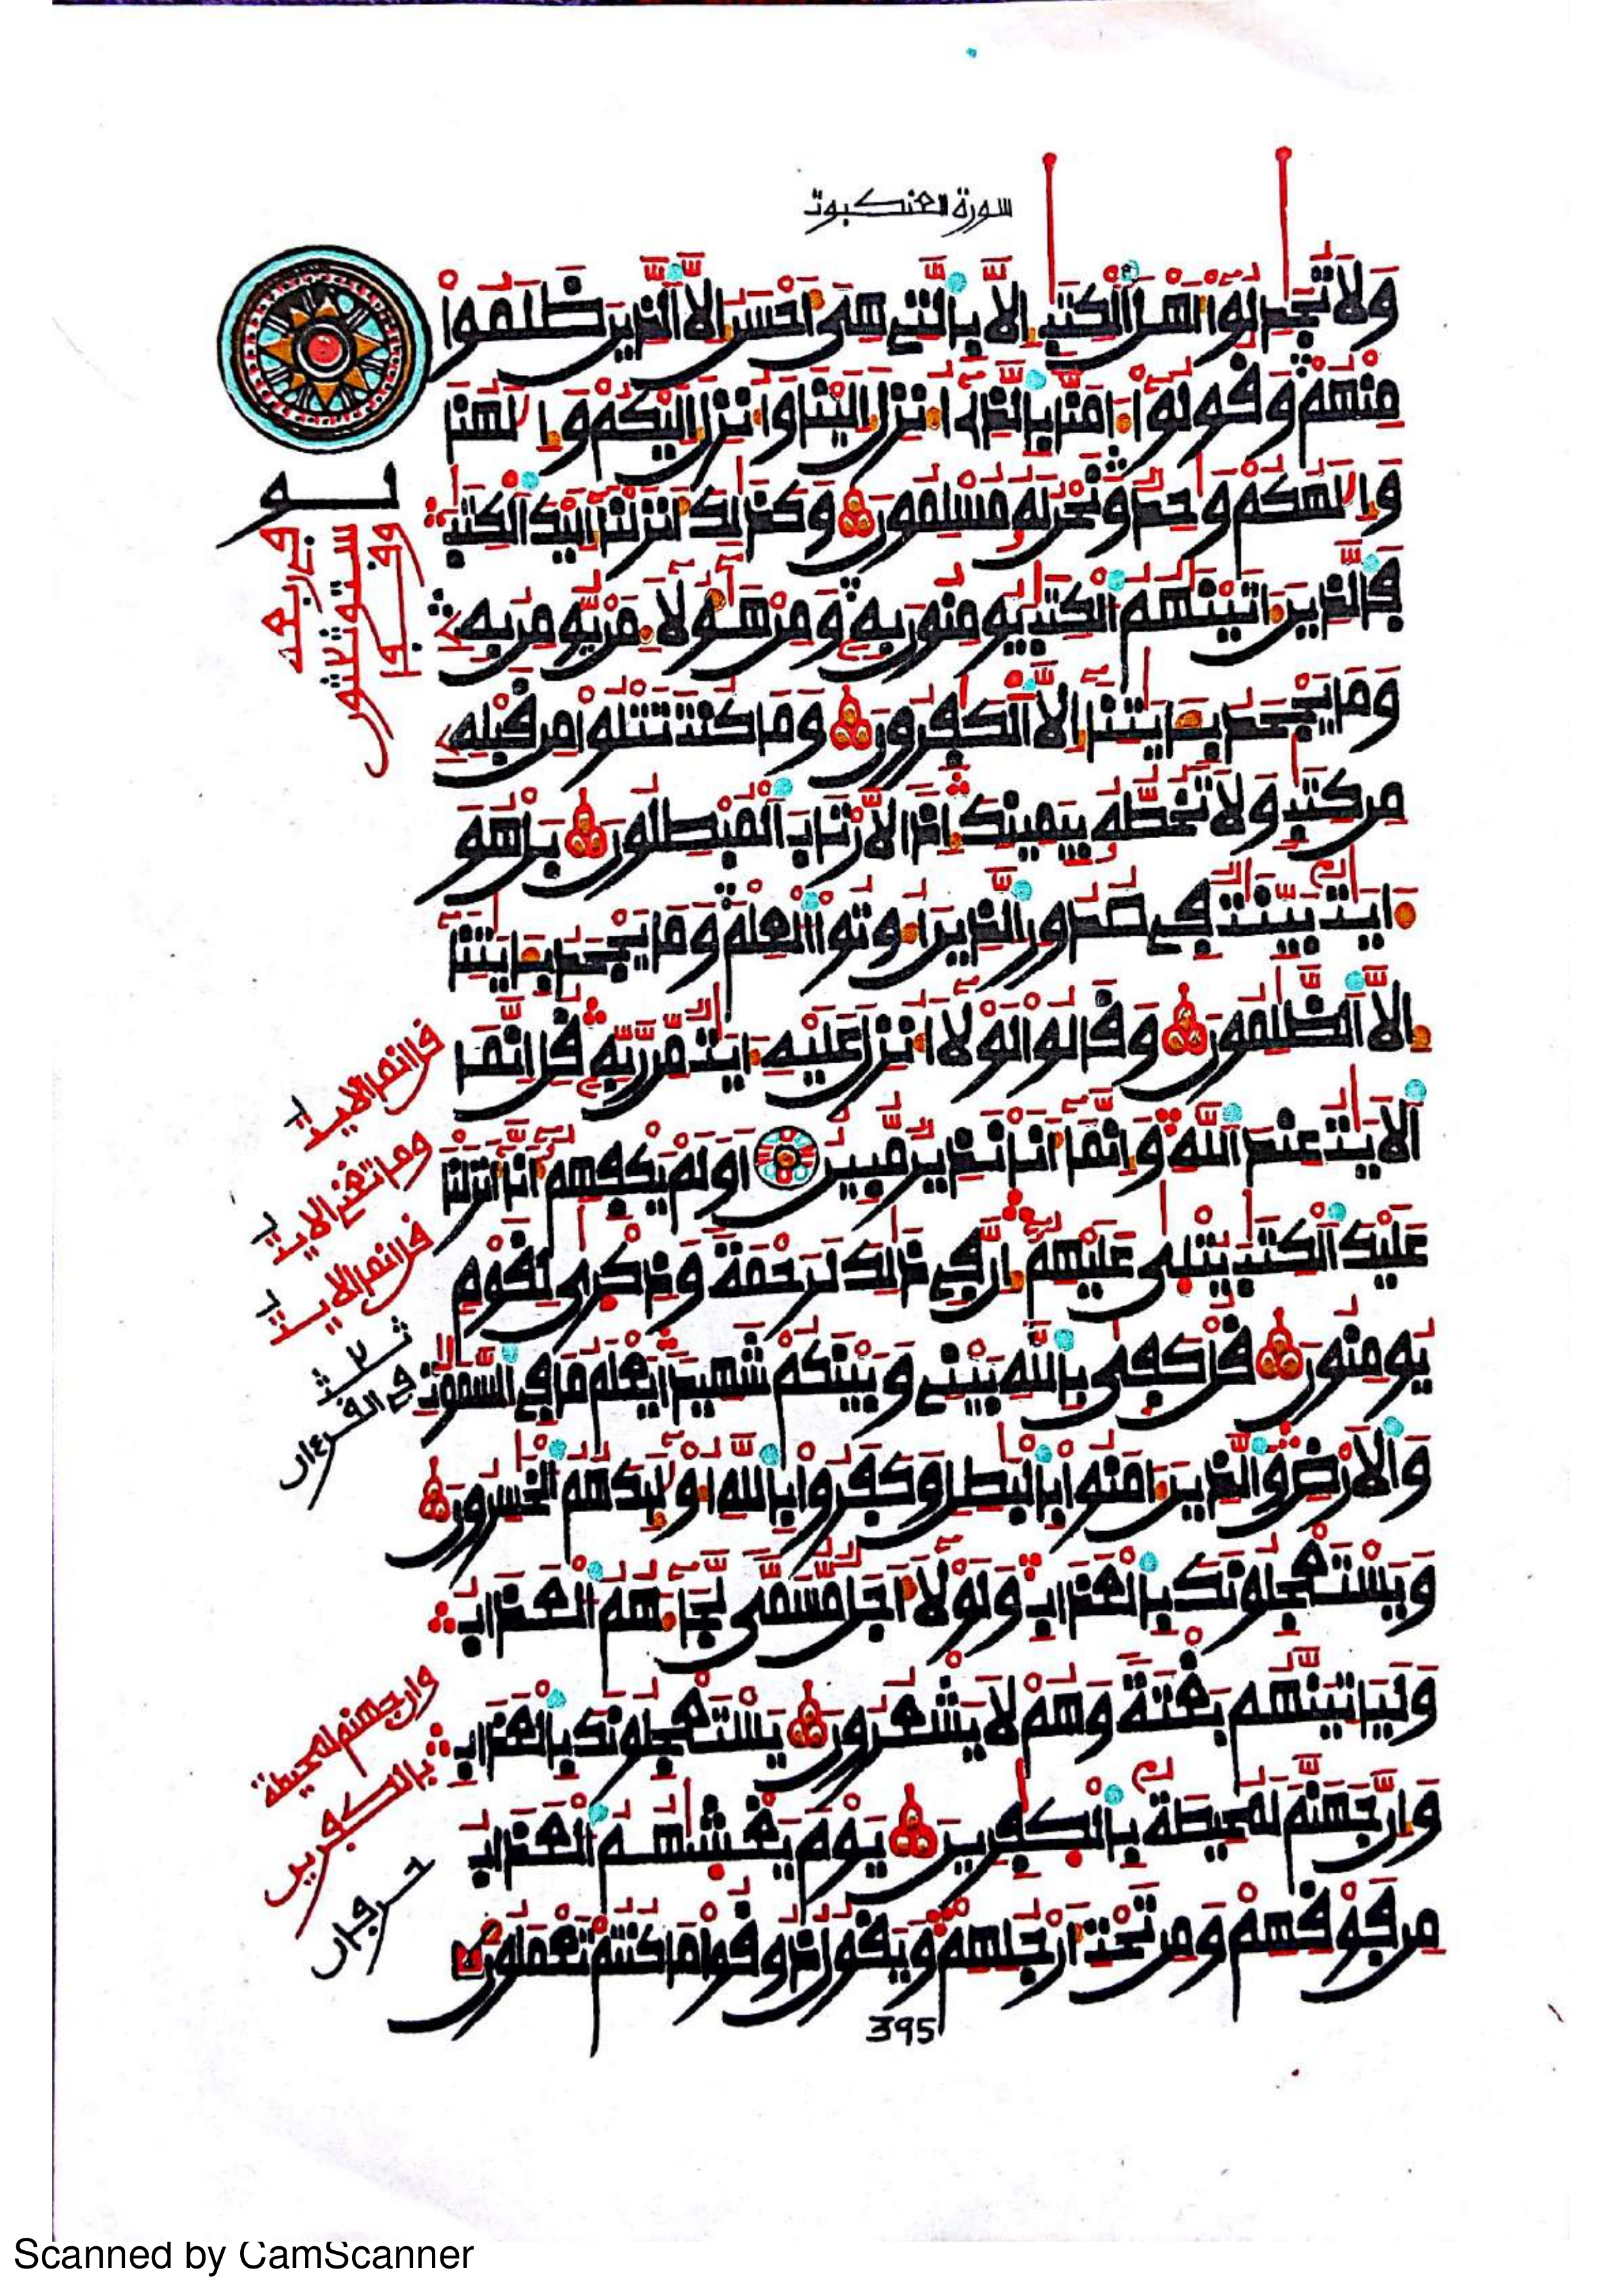 سورة العنكبوت
وَلَا تُجَٰدِلُوٓا۟ أَهْلَ ٱلْكِتَٰبِ إِلَّا بِٱلَّتِى هِىَ أَحْسَنُ إِلَّا ٱلَّذِينَ ظَلَمُوا۟
مِنْهُمْ وَقُولُوٓا۟ ءَامَنَّا بِٱلَّذِىٓ أُنزِلَ إِلَيْنَا وَأُنزِلَ إِلَيْكُمْ وَإِلَٰهُنَا
وَإِلَٰهُكُمْ وَٰحِدٌ وَنَحْنُ لَهُۥ مُسْلِمُونَ وَكَذَٰلِكَ أَنزَلْنَآ إِلَيْكَ ٱلْكِتَٰبَ
فَٱلَّذِينَ ءَاتَيْنَٰهُمُ ٱلْكِتَٰبَ يُومِنُونَ بِهِۦ وَمِنْ هَٰٓؤُلَآءِ مَنْ يُّومِنُ بِهِۦ
وَمَا يَجْحَدُ بِـَٔايَٰتِنَآ إِلَّا ٱلْكَٰفِرُونَ وَمَا كُنتَ تَتْلُوا۟ مِن قَبْلِهِۦ
مِن كِتَٰبٍ وَلَا تَخُطُّهُۥ بِيَمِينِكَ إِذًا لَّٱرْتَابَ ٱلْمُبْطِلُونَ بَلْ هُوَ
ءَايَٰتٌۢ بَيِّنَٰتٌ فِى صُدُورِ ٱلَّذِينَ أُوتُوا۟ ٱلْعِلْمَ وَمَا يَجْحَدُ بِـَٔايَٰتِنَآ
إِلَّا ٱلظَّٰلِمُونَ وَقَالُوا۟ لَوْلَآ أُنزِلَ عَلَيْهِ ءَايَٰتٌ مِّن رَّبِّهِۦ قُلْ إِنَّمَا
ٱلْأَيَٰتُ عِندَ ٱللَّهِ وَإِنَّمَآ أَنَا۠ نَذِيرٌ مُّبِينٌ أَوَلَمْ يَكْفِهِمُۥٓ أَنَّآ أَنزَلْنَا
عَلَيْكَ ٱلْكِتَٰبَ يُتْلَىٰ عَلَيْهِمُۥٓ إِنَّ فِى ذَٰلِكَ لَرَحْمَةً وَذِكْرَىٰ لِقَوْمٍ
يُومِنُونَ قُلْ كَفَىٰ بِٱللَّهِ بَيْنِى وَبَيْنَكُمْ شَهِيدًا يَعْلَمُ مَا فِى ٱلسَّمَٰوَٰتِ
وَٱلْأَرْضِ وَٱلَّذِينَ ءَامَنُوا۟ بِٱلْبَٰطِلِ وَكَفَرُوا۟ بِٱللَّهِ أُو۟لَٰٓئِكَ هُمُ ٱلْخَٰسِرُونَ
وَيَسْتَعْجِلُونَكَ بِٱلْعَذَابِ وَلَوْلَآ أَجَلٌ مُّسَمًّى لَّجَآءَهُمُ ٱلْعَذَابُ
وَلَيَاتِيَنَّهُم بَغْتَةً وَهُمْ لَا يَشْعُرُونَ يَسْتَعْجِلُونَكَ بِٱلْعَذَابِ
وَإِنَّ جَهَنَّمَ لَمُحِيطَةٌۢ بِٱلْكَٰفِرِينَ يَوْمَ يَغْشَىٰهُمُ ٱلْعَذَابُ
مِن فَوْقِهِمْ وَمِن تَحْتِ أَرْجُلِهِمْ وَيَقُولُ ذُوقُوا۟ مَا كُنتُمْ تَعْمَلُونَ
قل انما الايت
وما تغن الايت
قل انما الايت
ثلث
في القرءان
وان جهنم لمحيطة
بالكفرين
حرفان
395
Scanned by CamScanner